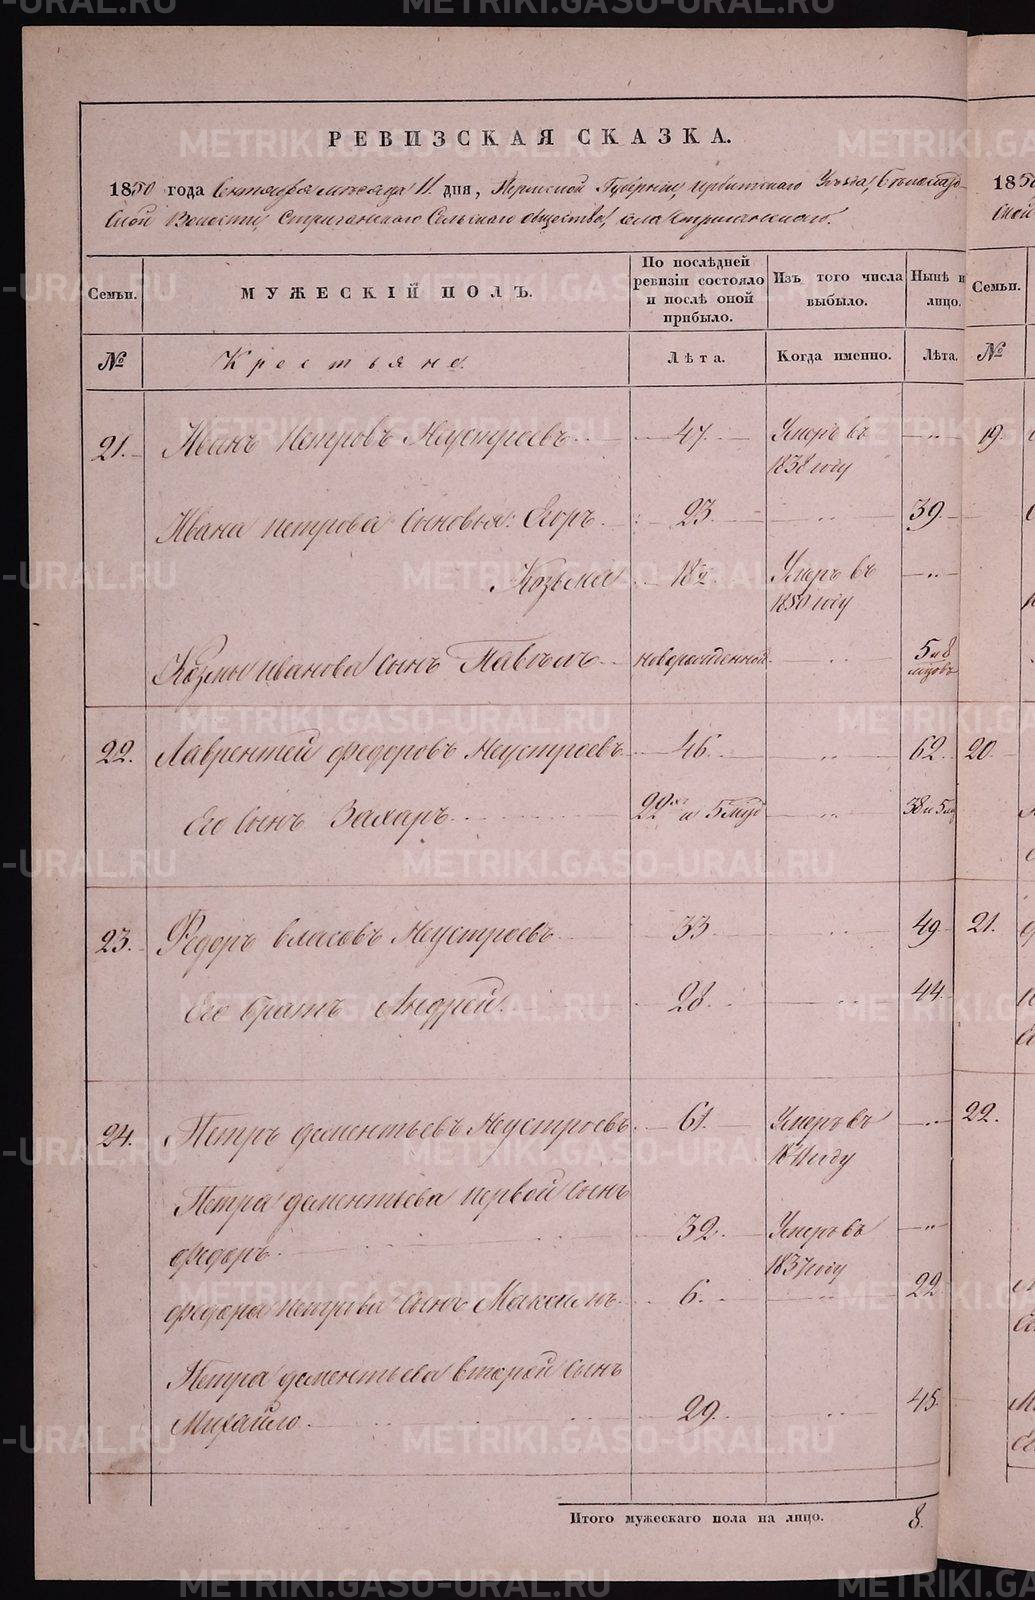 РЕВИЗСКАЯ СКАЗКА.
1850 года Сентября месяца 11. дня, Пермской Губернiи, Ирбитскаго Уѣзда, Бѣлослуд-
ской Волости, Стриганскаго Сельскаго общества, села Стриганскаго.
Семьи.
МУЖЕСКIЙ ПОЛЪ.
По послѣдней ревизiи состояло и послѣ оной прибыло.
Изъ того числа выбыло.
Нынѣ н лицо.
№
Крестьяне.
Лѣта.
Когда именно.
Лѣта.
21. Иванъ Петровъ Неустроевъ 47. Умеръ въ 1838 году
Ивана Петрова Сыновья: Егоръ 23. 39.
Козьма 18 Умеръ въ 1850 году
Козмы Иванова Сынъ Павелъ новорожденной 5 и 8 мцовъ
22. Лаврентей Федоровъ Неустроевъ 46. 62.
Его сынъ Захаръ 22 и 5 мцъ 38 и 5 мц
23. Федоръ Власовъ Неустроевъ 33 49
Его братъ Андрей. 28. 44.
24. Петръ Дементьевъ Неустроевъ 61. Умеръ въ 1841 году
Петра Дементьева первой Сынъ
Федоръ. 32. Умеръ въ 1837 году
Федора Петрова Сынъ Максимъ 6. 22
Петра Дементьева второй Сынъ
Михайло 29. 45.
Итого мужескаго пола на лицо. 8.
185
ской
Семьи.
№
19.
20.
21.
22.
METRIKI.GASO-URAL.RU